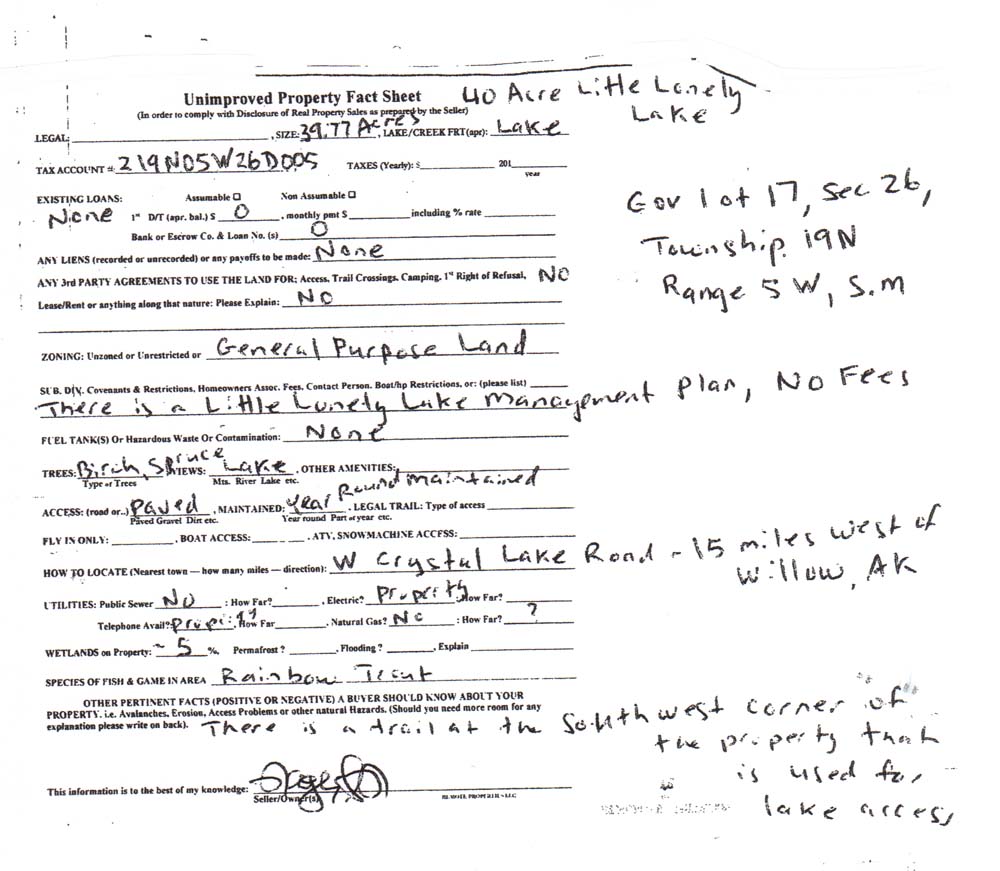 Unimproved Property Fact Sheet
40 Acre Little Lonely Lake
(In order to comply with Disclosure of Real Property Sales as prepared by the Seller)
LEGAL: ____ , SIZE: 39.77 Acres , LAKE/CREEK FRT(apr): Lake
TAX ACCOUNT #: 219N05W26D005 TAXES (Yearly): $ ____ 201__
year
Gov lot 17, Sec 26,
Township 19N
Range 5 W, S.M
EXISTING LOANS: Assumable ☐ Non Assumable ☐
None 1st D/T (apr. bal.) $ 0 , monthly pmt $ ____ including % rate ____
Bank or Escrow Co. & Loan No. (s) 0
ANY LIENS (recorded or unrecorded) or any payoffs to be made: None
ANY 3rd PARTY AGREEMENTS TO USE THE LAND FOR; Access, Trail Crossings, Camping, 1st Right of Refusal, NO
Lease/Rent or anything along that nature: Please Explain: NO
ZONING: Unzoned or Unrestricted or General Purpose Land
SUB. DIV. Covenants & Restrictions, Homeowners Assoc. Fees, Contact Person. Boat/hp Restrictions, or: (please list) ____
There is a Little Lonely Lake Management Plan, No Fees
FUEL TANK(S) Or Hazardous Waste Or Contamination: None
TREES: Birch, Spruce VIEWS: Lake , OTHER AMENITIES: ____
Type of Trees Mts. River Lake etc.
ACCESS: (road or..) Paved , MAINTAINED: Year Round Maintained , LEGAL TRAIL: Type of access ____
Paved Gravel Dirt etc. Year round Part of year etc.
FLY IN ONLY: ____ , BOAT ACCESS: ____ , ATV, SNOWMACHINE ACCESS: ____
HOW TO LOCATE (Nearest town — how many miles — direction): W Crystal Lake Road - 15 miles west of
Willow, AK
UTILITIES: Public Sewer No : How Far? ____ , Electric? Proprity , How Far? ____
Telephone Avail?: Proprity , How Far ____ , Natural Gas? No : How Far? ?
WETLANDS on Property: ~ 5 %, Permafrost ? ____ , Flooding ? ____ , Explain ____
SPECIES OF FISH & GAME IN AREA Rainbow Trout
OTHER PERTINENT FACTS (POSITIVE OR NEGATIVE) A BUYER SHOULD KNOW ABOUT YOUR
PROPERTY. i.e. Avalanches, Erosion, Access Problems or other natural Hazards. (Should you need more room for any
explanation please write on back). There is a trail at the Southwest corner of
the property that
is used for
lake access
This information is to the best of my knowledge:
Seller/Owner(s)
REMOTE PROPERTIES LLC